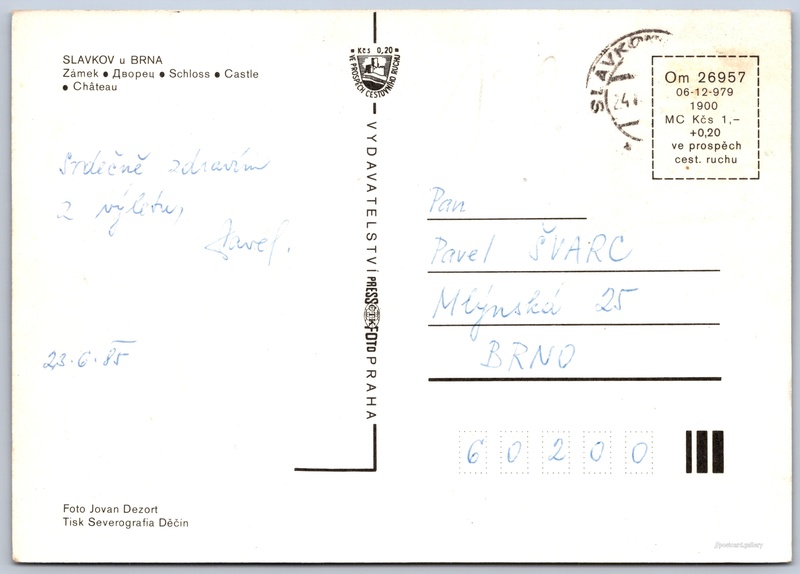 SLAVKOV u BRNA
Zámek ● Дворец ● Schloss ● Castle
● Château
Kčs 0,20
VE PROSPĚCH CESTOVNÍHO RUCHU
SLAVKOV
24
Om 26957
06-12-979
1900
MC Kčs 1,–
+0,20
ve prospěch
cest. ruchu
Srdečně zdravím
z výletu,
Pavel.
23.6.85
VYDAVATELSTVÍ PRESSFOTO PRAHA
ČTK
Pan
Pavel ŠVARC
Mlýnská 25
BRNO
60200
Foto Jovan Dezort
Tisk Severografia Děčín